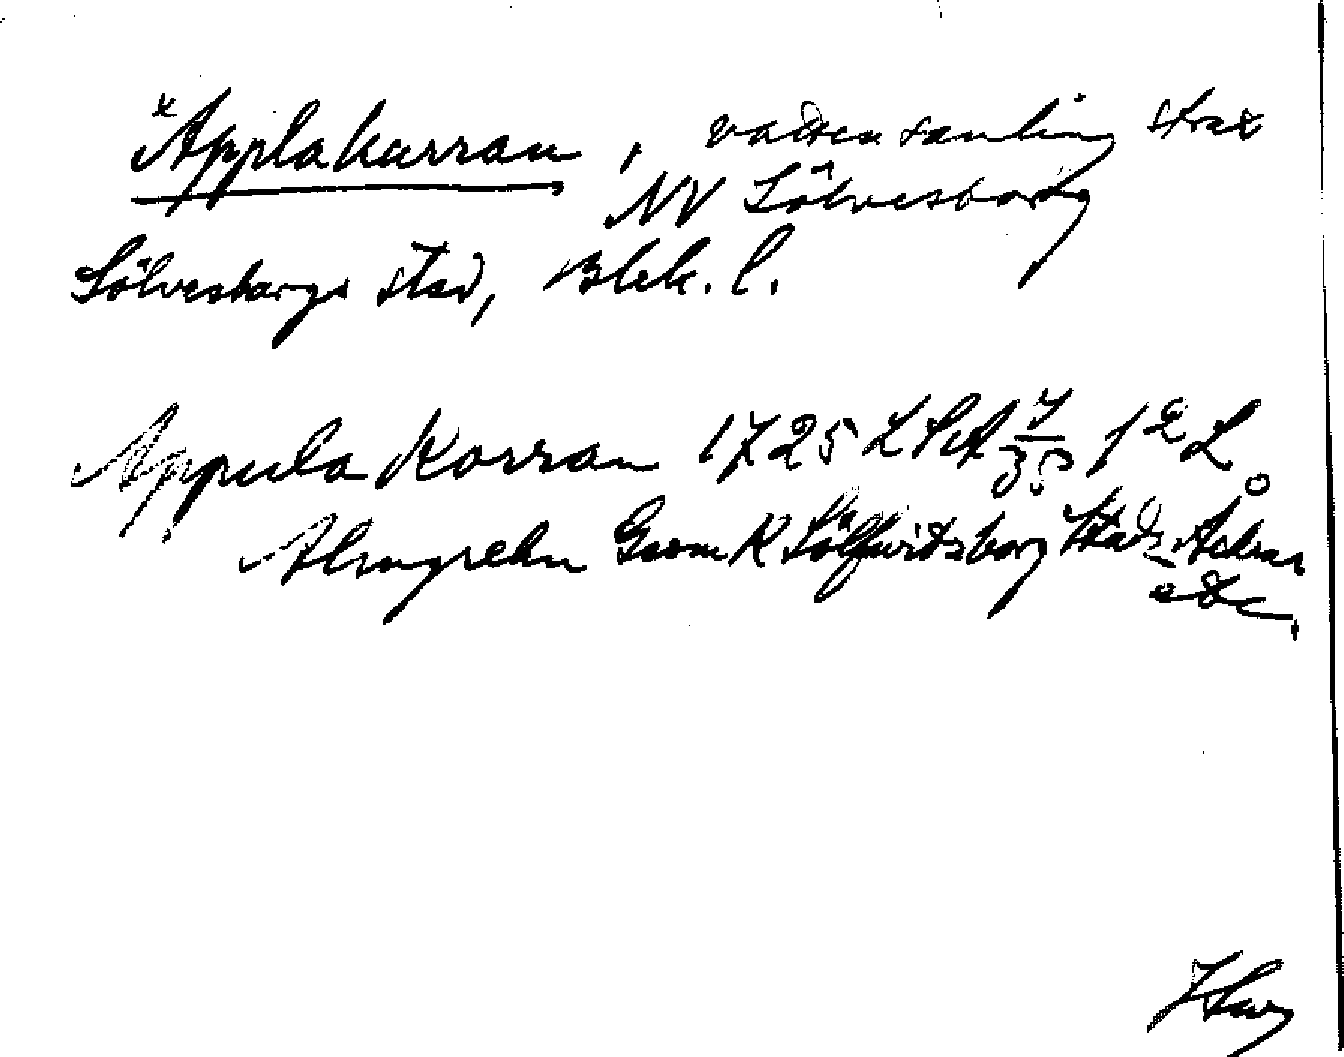 *Applakurran, vattensamling strax
NV Sölvesborg
Sölvesborgs stad, Blek. l.
Appula Korran 1725 LSA
Almgrehn Geom K Sölfwitzborg Stads Åkrar
etc.